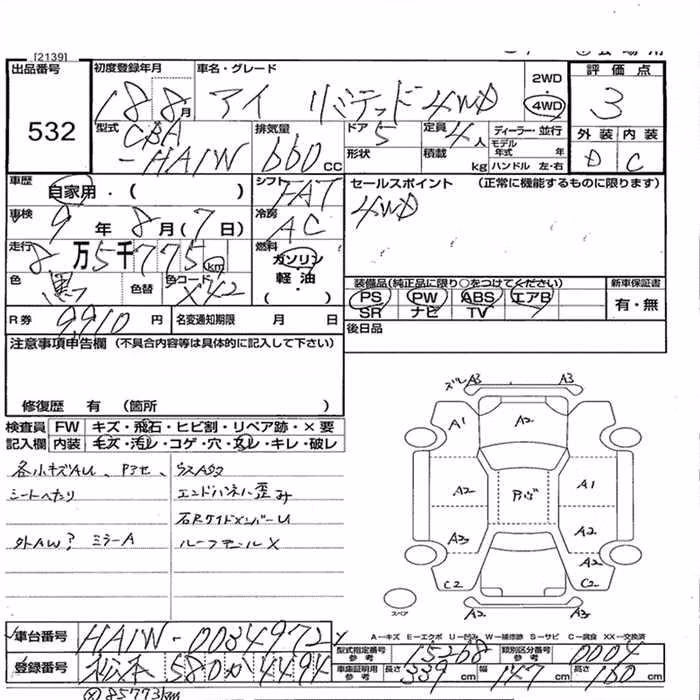 [2139]
出品番号 初度登録年月 車名・グレード 2WD 評価点
532 18 8月 アイ リミテッド 4WD ・ 4WD 3
型式 CBA-HA1W 排気量 660cc ドア 5 定員 4人 ディーラー・並行 外装 内装
形状 積載 kg モデル年式 年 ハンドル 左・右 D C
車歴 自家用・( ) シフト FAT セールスポイント (正常に機能するものに限ります)
車検 9年 8月(7日) 冷房 AC 4WD
走行 8万5千775km 燃料 ガソリン
軽・油
( )
色 黒 色替 色コード X42 装備品(純正品に限り○をつけてください) 新車保証書
PS PW ABS エアB 有・無
SR ナビ TV
R券 9910円 名変通知期限 月 日 後日品
注意事項申告欄 (不具合内容等は具体的に記入して下さい)
修復歴 有 (箇所 )
検査員 FW キズ・飛石・ヒビ割・リペア跡・×要
記入欄 内装 キズ・汚レ・コゲ・穴・スレ・キレ・破レ
各小キズAU、
シートへたり エンドパネル歪み
外AW? ミラーA ルーフモール X
ズレ A3 A3
A1 A2
A2 A1
A3 A2
A2
C2 C2
スペア A2 A3
A-キズ E-エクボ U-凹み W-補修跡 S-サビ C-腐食 XX-交換済
車台番号 HA1W-0034972
型式指定番号 参考 15268 類別区分番号 参考 0004
登録番号 松本 580 か 4494
車庫証明用 参考 長さ 339cm 幅 147cm 高さ 160cm
85773km